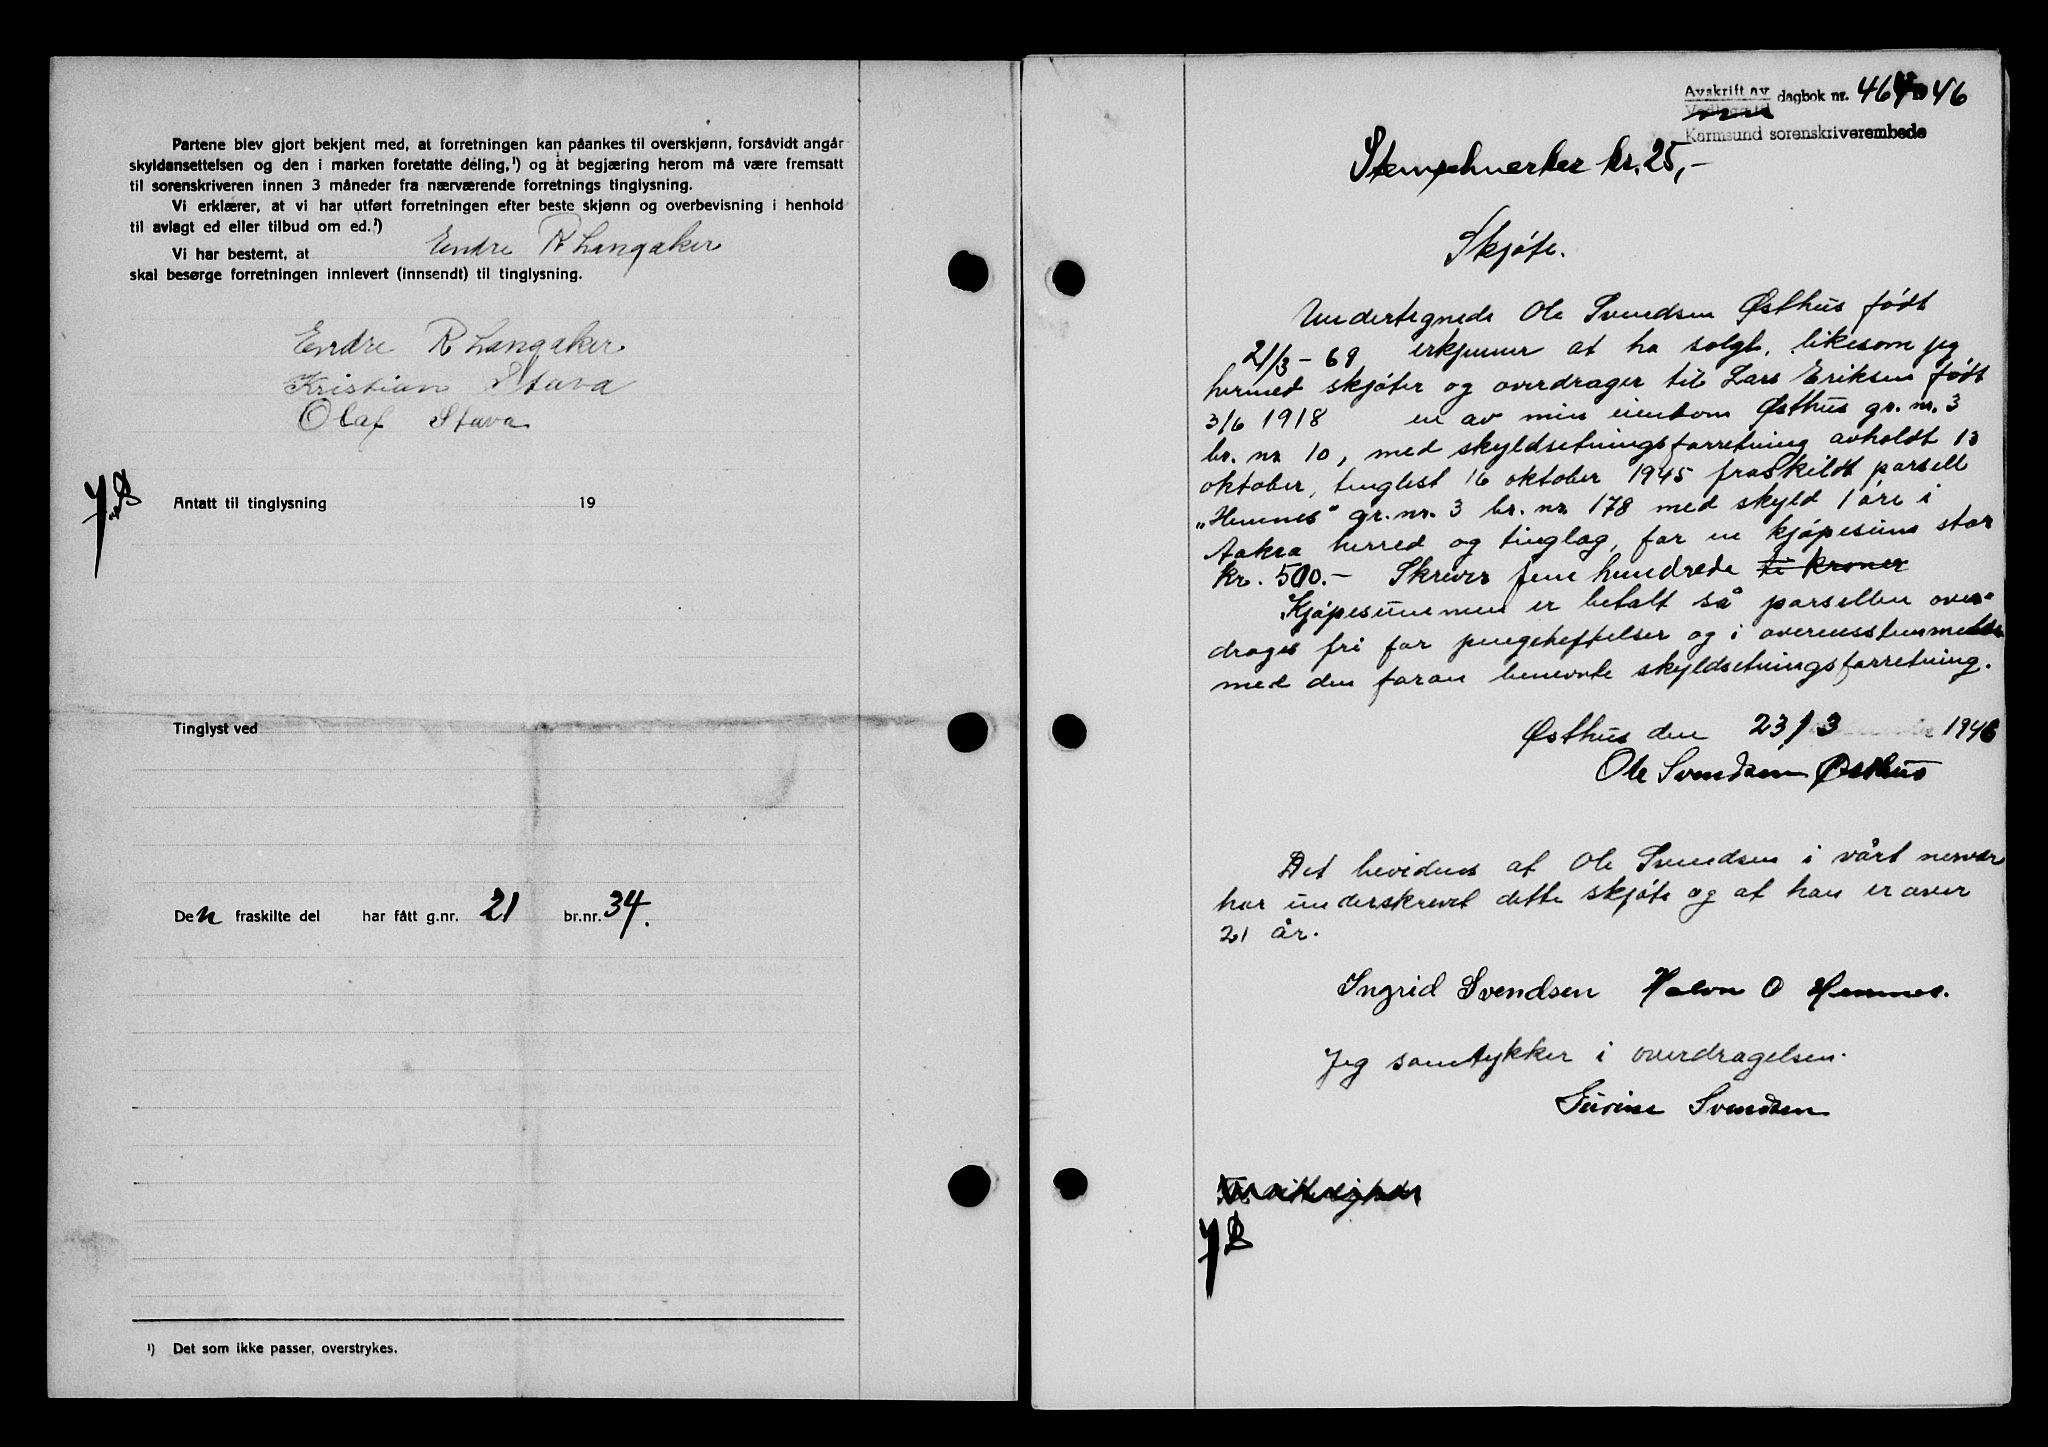 Partene blev gjort bekjent med, at forretningen kan påankes til overskjønn, forsåvidt angår
skyldansettelsen og den i marken foretatte deling,¹) og at begjæring herom må være fremsatt
til sorenskriveren innen 3 måneder fra nærværende forretnings tinglysning.
Vi erklærer, at vi har utført forretningen efter beste skjønn og overbevisning i henhold
til avlagt ed eller tilbud om ed.¹)
Vi har bestemt, at Endre R Langaker
skal besørge forretningen innlevert (innsendt) til tinglysning.
Endre R Langaker
Kristian Stava
Olaf Stava
Antatt til tinglysning 19
Tinglyst ved
Den fraskilte del har fått g.nr. 21 br.nr. 34.
¹) Det som ikke passer, overstrykes.
Avskrift av dagbok nr. 46
Karmsund sorenskriverembede
Stempelmerker kr. 25,-
Skjøte.
Undertegnede Ole Svendsen Østhus født
21/3 - 69 erkjenner at ha solgt, likesom jeg
hermed skjøter og overdrager til Lars Eriksen født
3/6 1918 en av min eiendom Østhus gr. nr. 3
br. nr 10, med skyldsetningsforretning avholdt 13
oktober, tinglest 16 oktober 1945 fraskildt parsell
„Hemnes" gr. nr. 3 br. nr. 178 med skyld 1 øre i
Aakra herred og tinglag, for en kjøpesum stor
kr. 500.- Skriver fem hundrede ti kroner
Kjøpesummen er betalt så parsellen over-
drages fri for pengeheftelser og i overensstemmelse
med den foran benevnte skyldsetningsforretning.
Østhus den 23/3 1946
Ole Svendsen Østhus
Det bevidnes at Ole Svendsen i vårt nervær
har underskrevet dette skjøte og at han er over
21 år.
Ingrid Svendsen O Hemnes.
Jeg samtykker i overdragelsen.
Svendsen